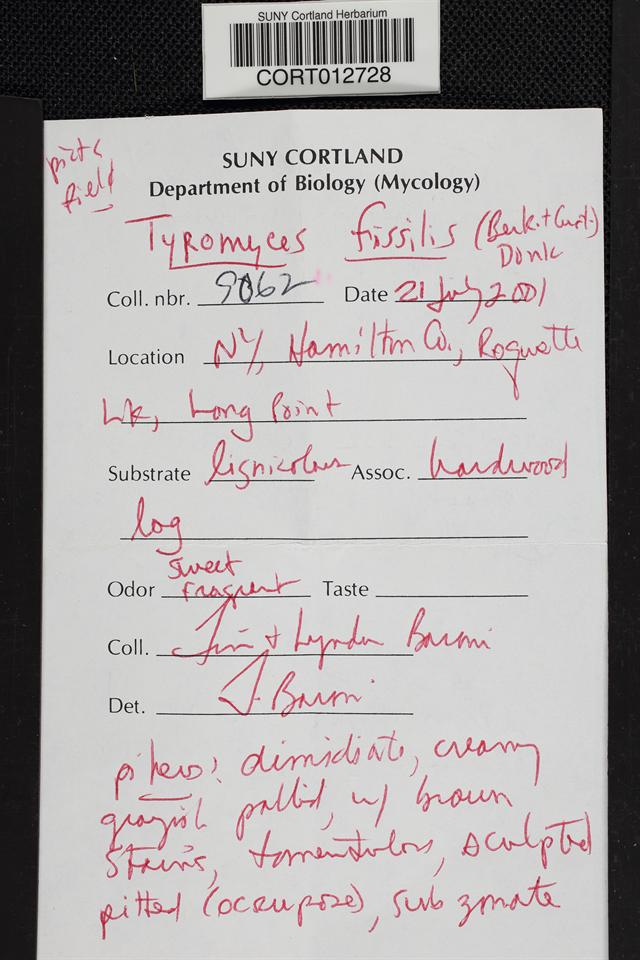 SUNY Cortland Herbarium
CORT012728
picts
field
SUNY CORTLAND
Department of Biology (Mycology)
Tyromyces fissilis (Berk. + Curt.)
Donk
Coll. nbr. 9062 Date 21 July 2001
Location NY, Hamilton Co., Raquette
Lk, Long Point
Substrate lignicolous Assoc. hardwood
log
sweet
Odor fragrent Taste
Coll. Tim + Lynden Baroni
Det. T. Baroni
pileus: dimidiate, creamy
grayish pallid, w/ brown
stains, tomentulous, sculpted
pitted (scrupose), sub zonate